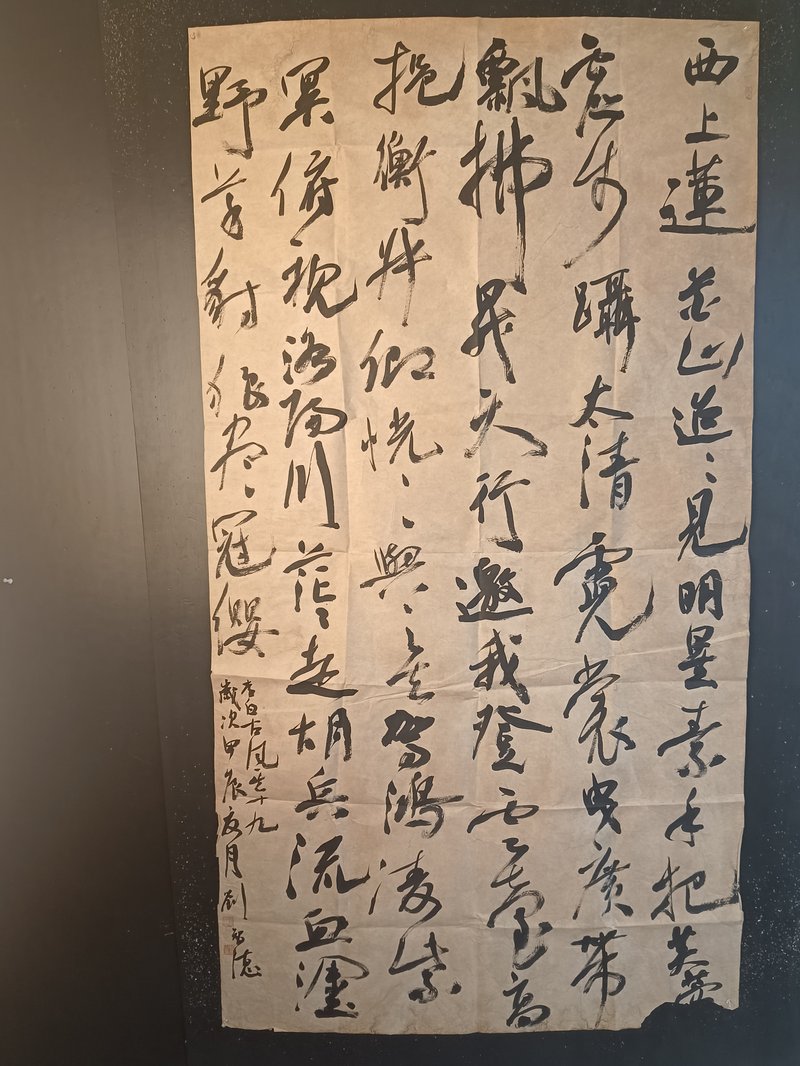 西上蓮花山迢〻見明星素手把芙蓉
虛步躡太清霓裳曳廣帶
飄拂昇天行邀我登雲臺高
挹衛叔卿恍〻與之去駕鴻凌紫
冥俯視洛陽川茫〻走胡兵流血塗
野草豺狼盡〻冠纓
李白古風其十九
歲次甲辰夏月劉德